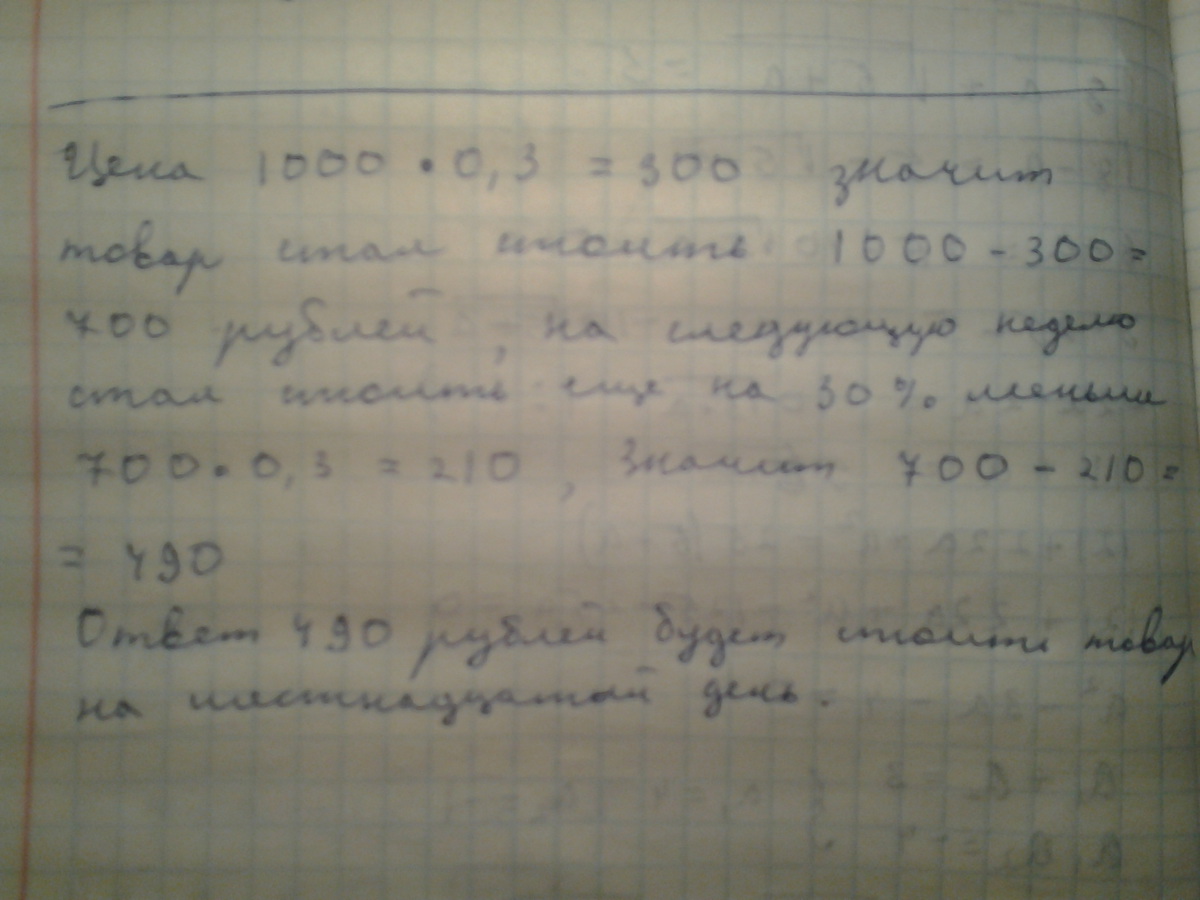 Цена 1000 • 0,3 = 300 значит
товар стал стоить 1000 - 300 =
700 рублей, на следующую неделю
стал стоить еще на 30% меньше
700 • 0,3 = 210, значит 700 - 210 =
= 490
Ответ 490 рублей будет стоить товар
на шестнадцатый день.